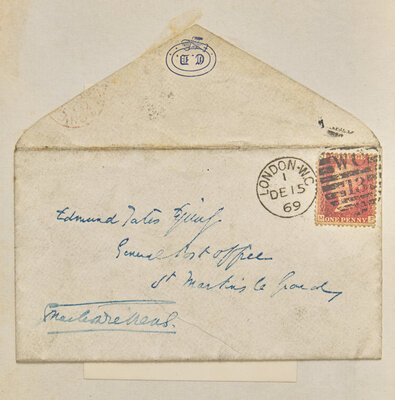 C.D.
LONDON·W.C
1
DE 15
69
WC
13
ONE PENNY
Edmund Yates Esquire
General Post Office
St Martins le Grand